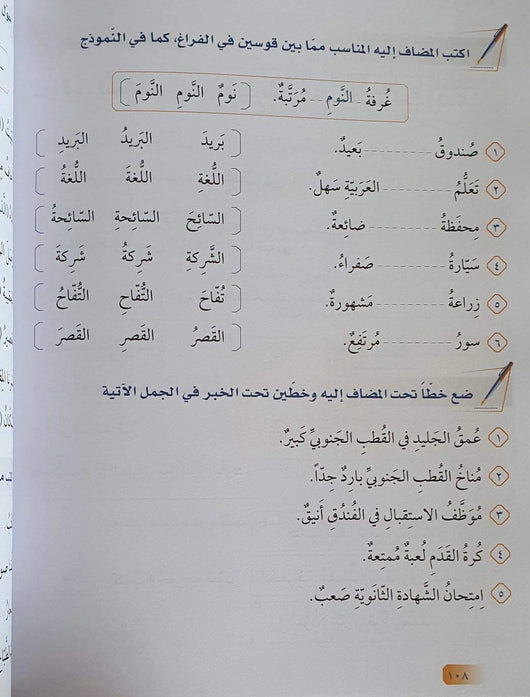 اكتب المضاف إليه المناسب ممّا بين قوسين في الفراغ، كما في النّموذج
غُرفةُ النَّومِ مُرَتَّبةٌ. (نَومٌ النَّومِ النَّومَ)
١ صُندوقُ -------- بَعيدٌ. (بَريدَ البَريدُ البَريدِ)
٢ تَعَلُّمُ -------- العَرَبيّةِ سَهلٌ. (اللُّغةِ اللُّغةَ اللُّغةُ)
٣ مِحفَظةُ -------- ضائِعةٌ. (السّائِحَ السّائِحةِ السّائِحةُ)
٤ سَيّارةُ -------- صَفراءُ. (الشَّرِكةِ شَرِكةُ شَرِكةَ)
٥ زِراعةُ -------- مَشهورةٌ. (تُفّاحَ التُّفّاحِ التُّفّاحُ)
٦ سورُ -------- مُرتَفِعٌ. (القَصرُ القَصرِ القَصرَ)
ضع خطّاً تحت المضاف إليه وخطّين تحت الخبر في الجمل الآتية
١ عُمقُ الجَليدِ في القُطبِ الجَنوبيِّ كَبيرٌ.
٢ مُناخُ القُطبِ الجَنوبيِّ بارِدٌ جِدّاً.
٣ مُوَظَّفُ الاستِقبالِ في الفُندُقِ أَنيقٌ.
٤ كُرةُ القَدَمِ لُعبةٌ مُمتِعةٌ.
٥ اِمتِحانُ الشَّهادةِ الثّانَويّةِ صَعبٌ.
١٠٨